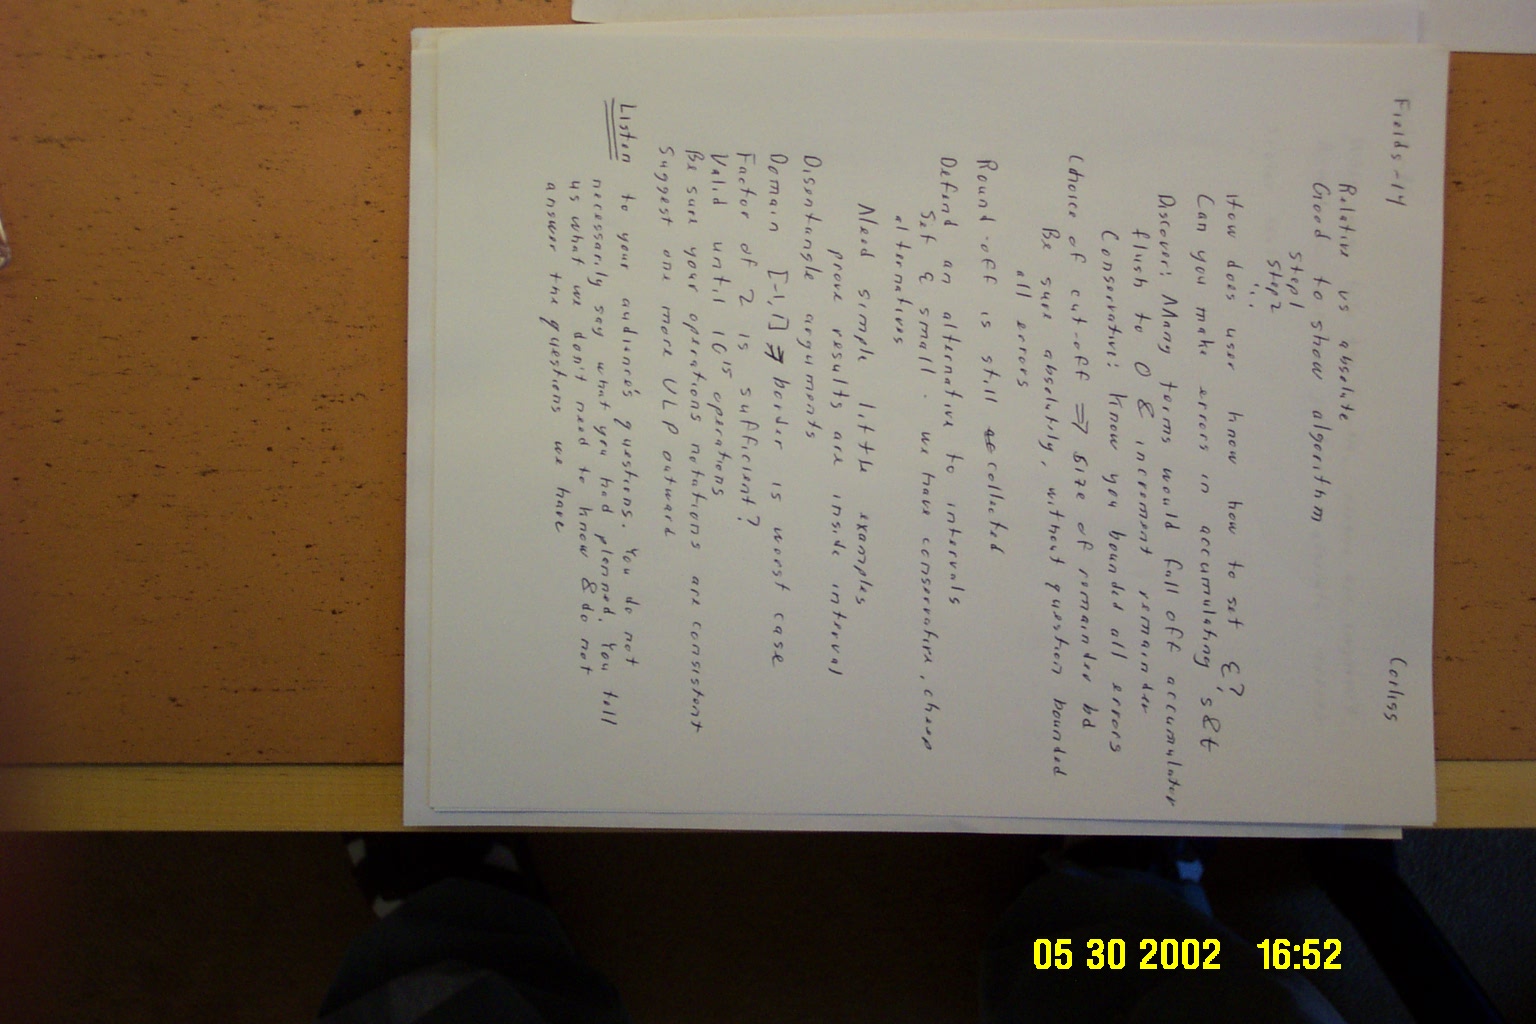 Fields-14 Corliss
Relative vs absolute
Good to show algorithm
Step1
Step2
How does user know how to set ε?
Can you make errors in accumulating s & t
Discover: Many terms would fall off accumulator
flush to 0 & increment remainder
Conservative: Know you bounded all errors
Choice of cut-off ⇒ size of remainder bd
Be sure absolutely, without question bounded
all errors
Round-off is still collected
Defend an alternative to intervals
Set ε small. We have conservative, cheap
alternatives
Need simple little examples
prove results are inside interval
Disentangle arguments
Domain [-1,1] ⇒ border is worst case
Factor of 2 is sufficient?
Valid until 10^15 operations
Be sure your operations notations are consistent
Suggest one more ULP outward
Listen to your audience's questions. You do not
necessarily say what you had planned. You tell
us what we don't need to know & do not
answer the questions we have
05 30 2002 16:52